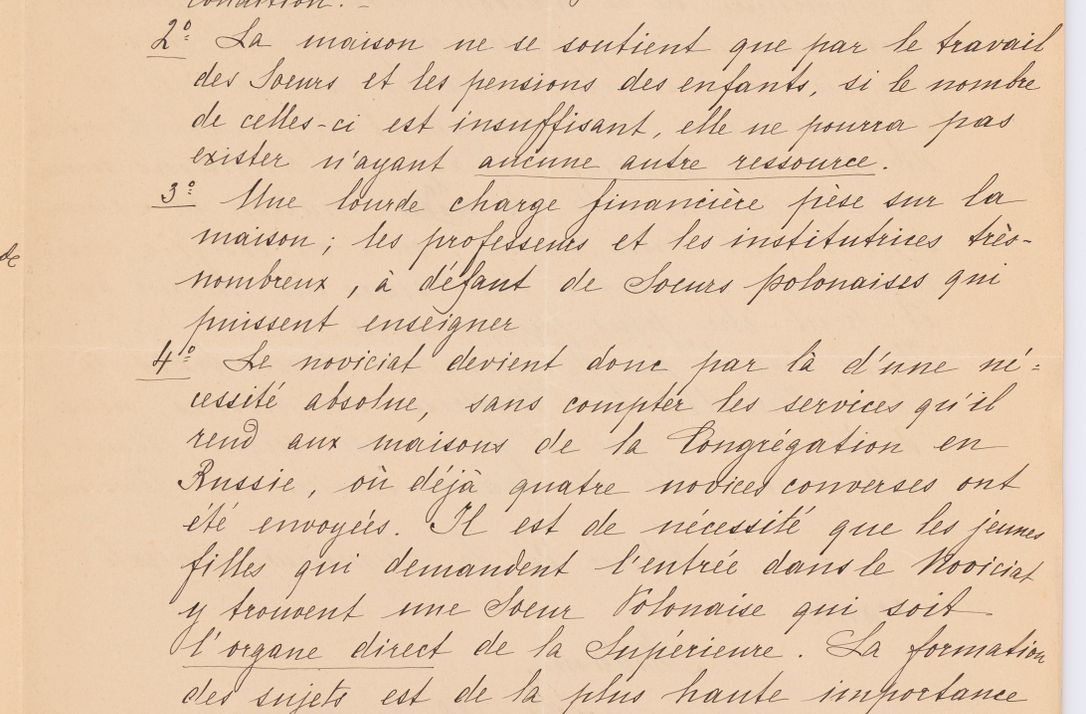 condition. -
2º La maison ne se soutient que par le travail
des Soeurs et les pensions des enfants, si le nombre
de celles-ci est insuffisant, elle ne pourra pas
exister n'ayant aucune autre ressource.
3º Une lourde charge financière pèse sur la
maison ; les professeurs et les institutrices très-
nombreux, à défaut de Soeurs polonaises qui
puissent enseigner
4º Le noviciat devient donc par là d'une né=
cessité absolue, sans compter les services qu'il
rend aux maisons de la Congrégation en
Russie, où déjà quatre novices converses ont
été envoyées. Il est de nécessité que les jeunes
filles qui demandent l'entrée dans le Noviciat
y trouvent une Soeur Polonaise qui soit
l'organe direct de la Supérieure. La formation
des sujets est de la plus haute importance